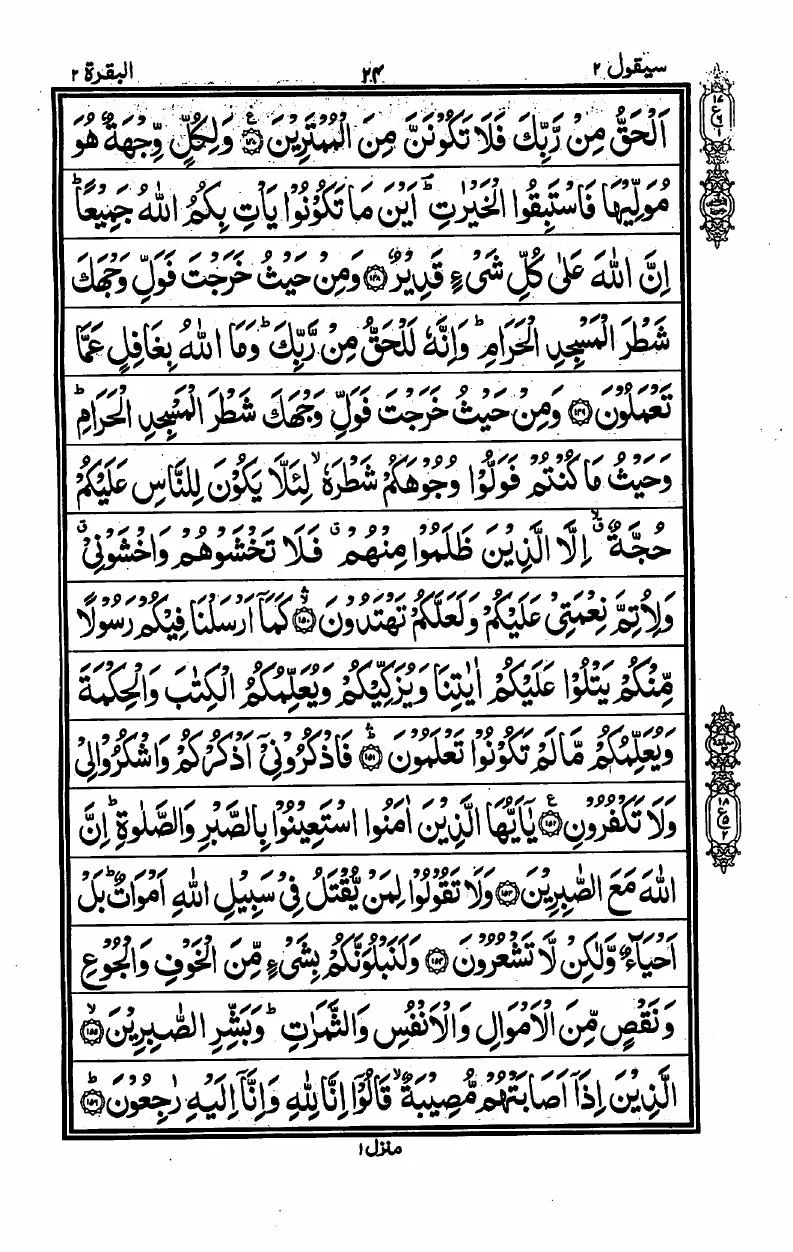 سيقول ٢
٢٤
البقرة ٢
اَلْحَقُّ مِنْ رَّبِّكَ فَلَا تَكُوْنَنَّ مِنَ الْمُمْتَرِيْنَ ﴿١٤٧﴾ وَلِكُلٍّ وِّجْهَةٌ هُوَ
مُوَلِّيْهَا فَاسْتَبِقُوا الْخَيْرٰتِ ؕ اَيْنَ مَا تَكُوْنُوْا يَاْتِ بِكُمُ اللّٰهُ جَمِيْعًا ؕ
اِنَّ اللّٰهَ عَلٰى كُلِّ شَىْءٍ قَدِيْرٌ ﴿١٤٨﴾ وَمِنْ حَيْثُ خَرَجْتَ فَوَلِّ وَجْهَكَ
شَطْرَ الْمَسْجِدِ الْحَرَامِ ؕ وَاِنَّهٗ لَلْحَقُّ مِنْ رَّبِّكَ ؕ وَمَا اللّٰهُ بِغَافِلٍ عَمَّا
تَعْمَلُوْنَ ﴿١٤٩﴾ وَمِنْ حَيْثُ خَرَجْتَ فَوَلِّ وَجْهَكَ شَطْرَ الْمَسْجِدِ الْحَرَامِ ؕ
وَحَيْثُ مَا كُنْتُمْ فَوَلُّوْا وُجُوْهَكُمْ شَطْرَهٗ ۙ لِئَلَّا يَكُوْنَ لِلنَّاسِ عَلَيْكُمْ
حُجَّةٌ ۙۗ اِلَّا الَّذِيْنَ ظَلَمُوْا مِنْهُمْ ۗ فَلَا تَخْشَوْهُمْ وَاخْشَوْنِىْ ۗ
وَلِاُتِمَّ نِعْمَتِىْ عَلَيْكُمْ وَلَعَلَّكُمْ تَهْتَدُوْنَ ﴿١٥٠﴾ كَمَاۤ اَرْسَلْنَا فِيْكُمْ رَسُوْلًا
مِّنْكُمْ يَتْلُوْا عَلَيْكُمْ اٰيٰتِنَا وَيُزَكِّيْكُمْ وَيُعَلِّمُكُمُ الْكِتٰبَ وَالْحِكْمَةَ
وَيُعَلِّمُكُمْ مَّا لَمْ تَكُوْنُوْا تَعْلَمُوْنَ ﴿١٥١﴾ فَاذْكُرُوْنِىْۤ اَذْكُرْكُمْ وَاشْكُرُوْا لِىْ
وَلَا تَكْفُرُوْنِ ﴿١٥٢﴾ يٰۤاَيُّهَا الَّذِيْنَ اٰمَنُوا اسْتَعِيْنُوْا بِالصَّبْرِ وَالصَّلٰوةِ ؕ اِنَّ
اللّٰهَ مَعَ الصّٰبِرِيْنَ ﴿١٥٣﴾ وَلَا تَقُوْلُوْا لِمَنْ يُّقْتَلُ فِىْ سَبِيْلِ اللّٰهِ اَمْوَاتٌ ؕ بَلْ
اَحْيَآءٌ وَّلٰكِنْ لَّا تَشْعُرُوْنَ ﴿١٥٤﴾ وَلَنَبْلُوَنَّكُمْ بِشَىْءٍ مِّنَ الْخَوْفِ وَالْجُوْعِ
وَنَقْصٍ مِّنَ الْاَمْوَالِ وَالْاَنْفُسِ وَالثَّمَرٰتِ ؕ وَبَشِّرِ الصّٰبِرِيْنَ ﴿١٥٥﴾ ۙ
الَّذِيْنَ اِذَاۤ اَصَابَتْهُمْ مُّصِيْبَةٌ ۙ قَالُوْۤا اِنَّا لِلّٰهِ وَاِنَّاۤ اِلَيْهِ رٰجِعُوْنَ ﴿١٥٦﴾ ؕ
منزل ١